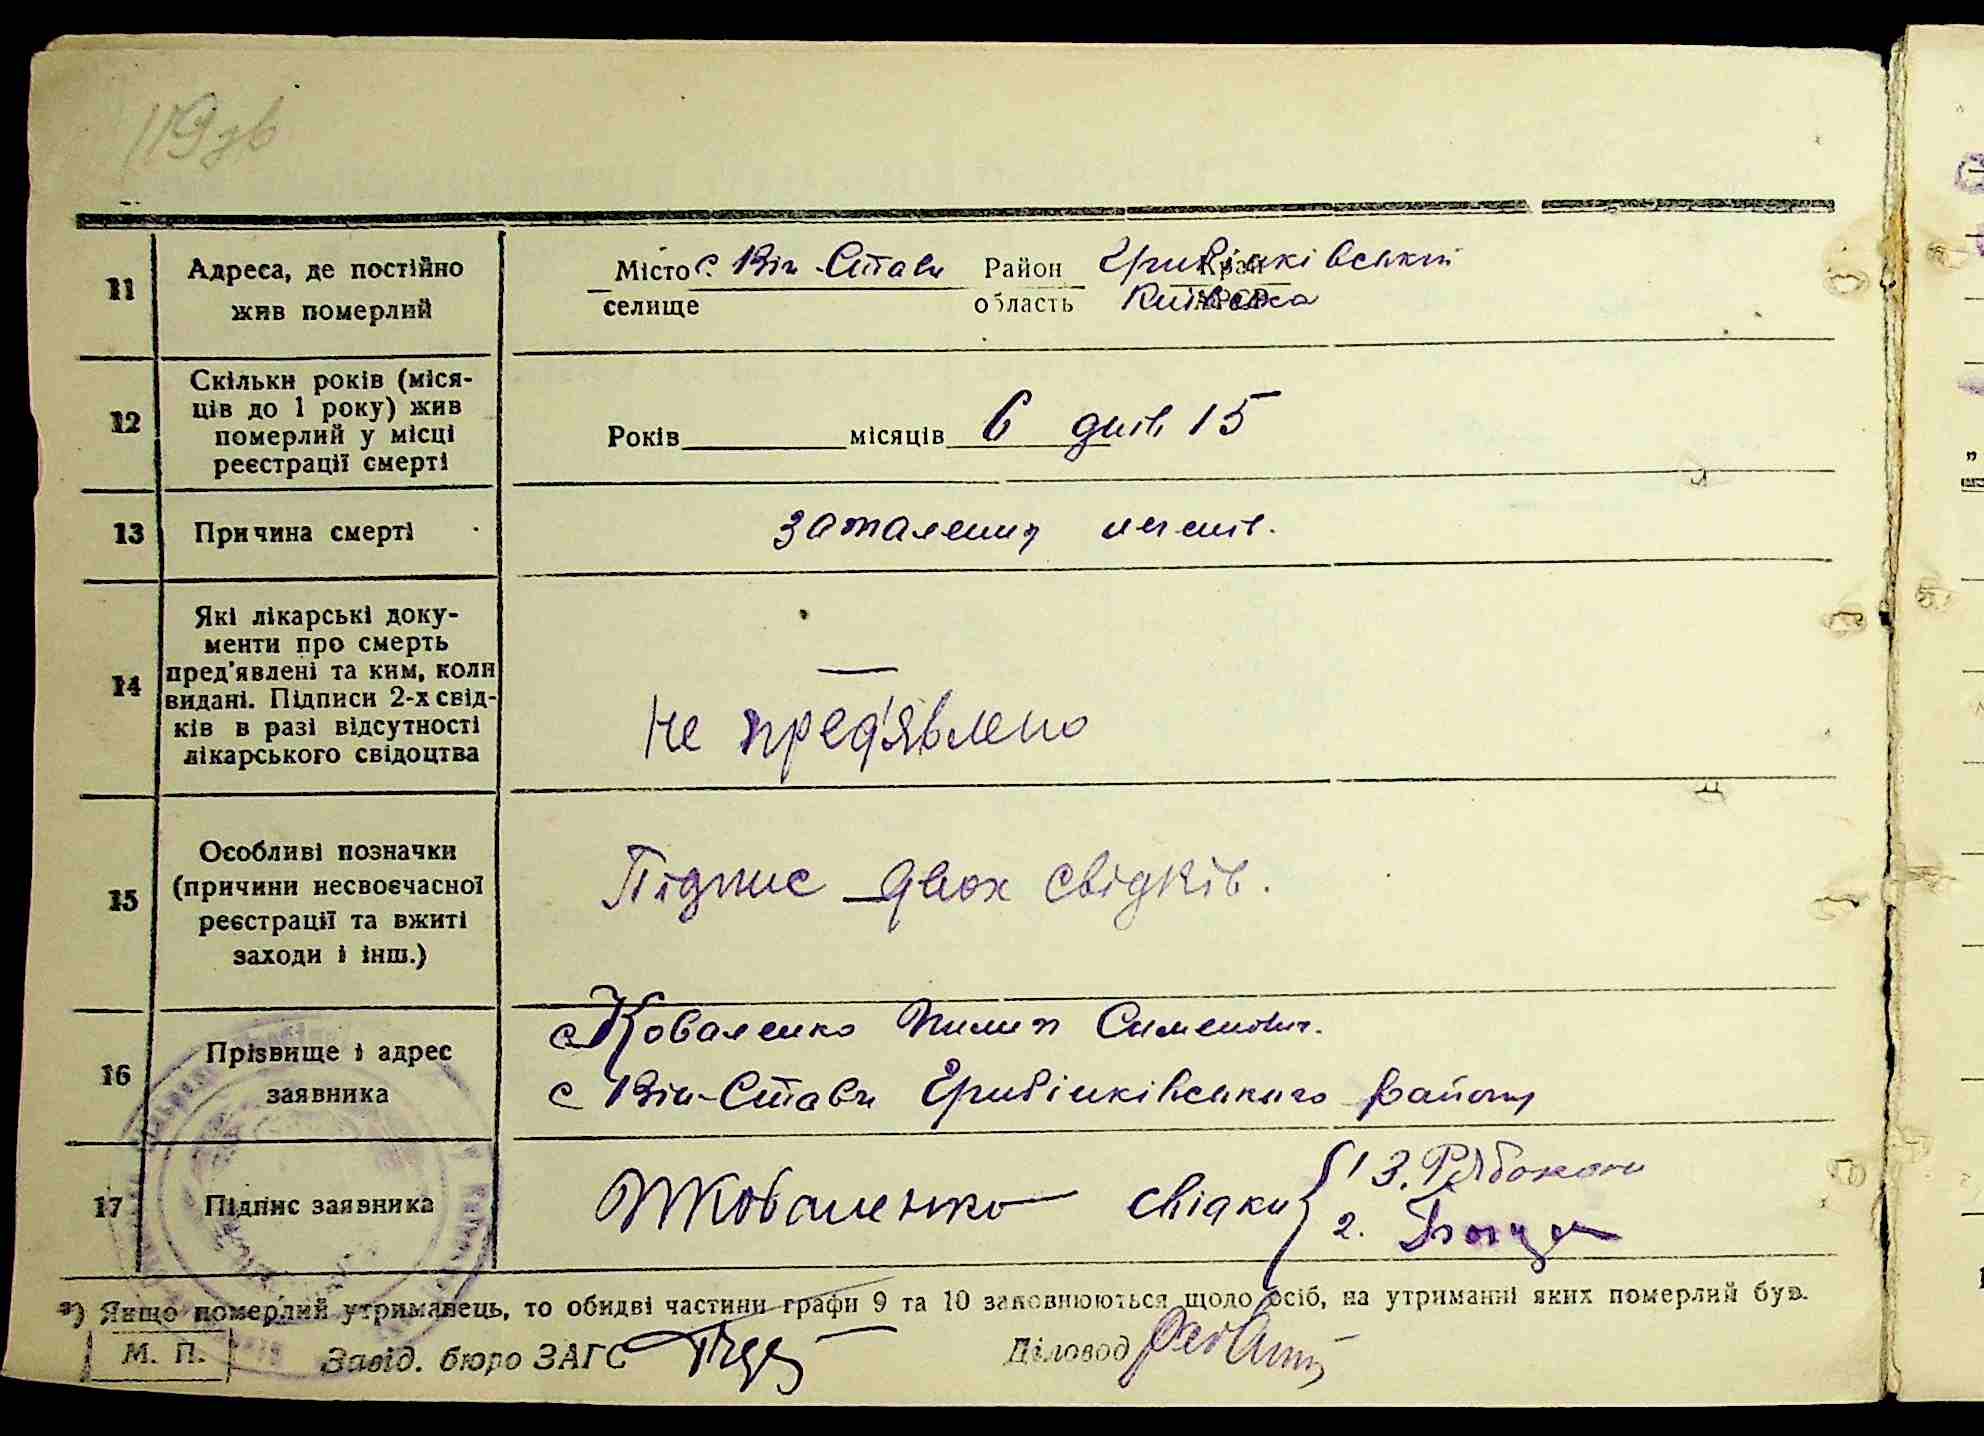 119 зв
11
Адреса, де постійно
жив померлий
Місто с. Віл-Стави Район Гребінківський Край
селище область Київська АРСР
12
Скільки років (міся-
ців до 1 року) жив
померлий у місці
реєстрації смерті
Років місяців 6 днів 15
13
Причина смерті
запалення легенів.
14
Які лікарські доку-
менти про смерть
пред'явлені та ким, коли
видані. Підписи 2-х свід-
ків в разі відсутності
лікарського свідоцтва
—
Не пред'явлено
15
Особливі позначки
(причини несвоєчасної
реєстрації та вжиті
заходи і інш.)
Підпис двох свідків.
16
Прізвище і адрес
заявника
Коваленко Пилип Сименович.
с Віл-Стави Гребінківського району
17
Підпис заявника
ПКоваленко свідки 1 З. Рябоконь
2.
*) Якщо померлий утриманець, то обидві частини графи 9 та 10 заповнюються щодо осіб, на утриманні яких померлий був.
М. П. Завід. бюро ЗАГС Діловод